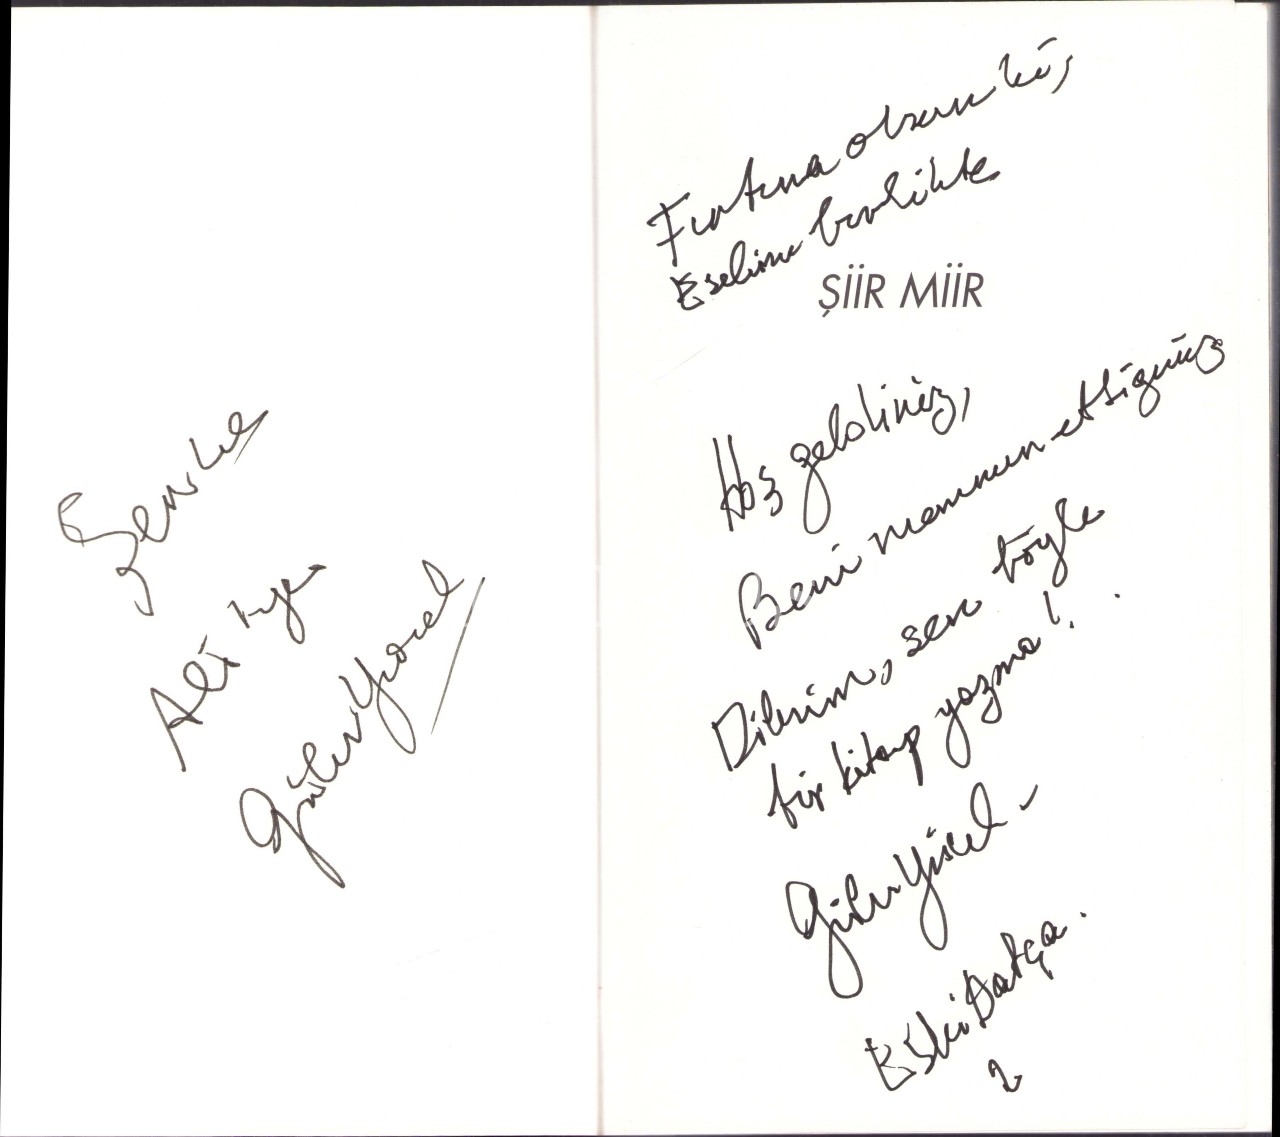 Şenkul
Ali
Güler Yücel
Fırtına olsun
Eselim birlikte
ŞİİR MİİR
Hoş geldiniz,
Beni memnun ettiğiniz
Dilerim, sen böyle
bir kitap yazma!
Güler Yücel
Eski Datça.